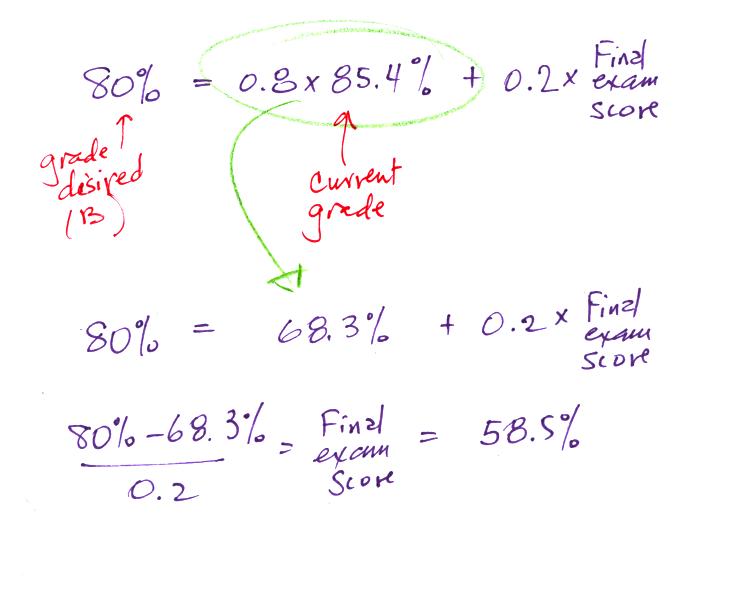 80% = 0.8 x 85.4% + 0.2 x Final exam score
grade desired (B)
current grade
80% = 68.3% + 0.2 x Final exam score
80% - 68.3% / 0.2 = Final exam score = 58.5%